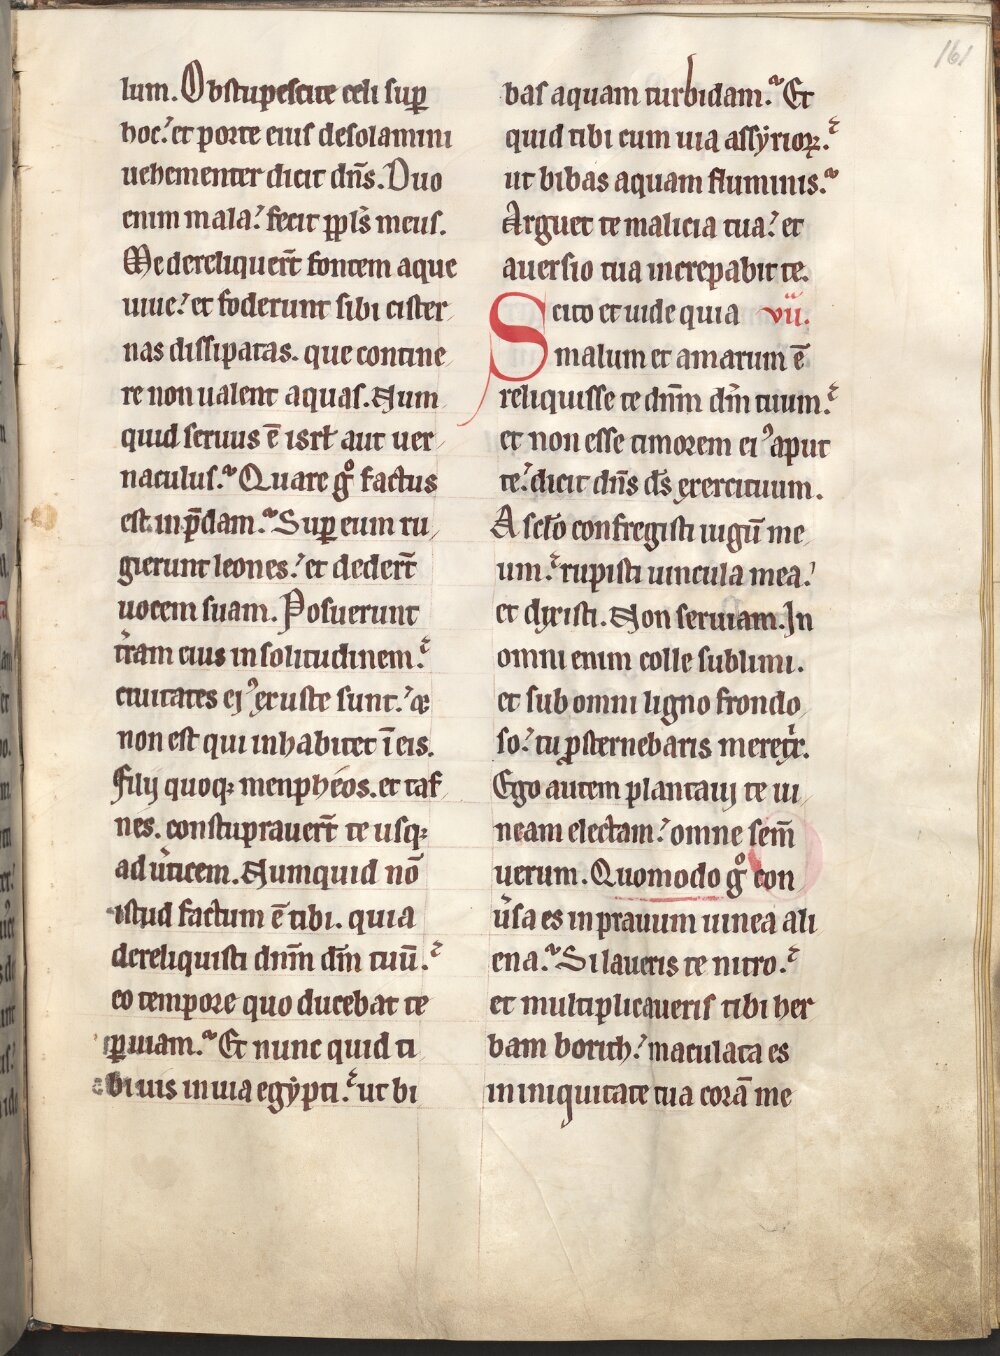 161
lum. Obstupescite celi sup̲
hoc.ʼ et porte eius desolamini
uehementer dicit dn̄s. Duo
enim mala.ʼ fecit pp̄ls meus.
Me dereliquer̄t fontem aque
uiue.ʼ et foderunt sibi cister
nas dissipatas. que contine
re non ualent aquas. Num
quid seruus ē isrł aut uer
naculus.ʼ Quare gͦ factus
est in p̄dam.ʼ Sup̲ eum ru
gierunt leones.ʼ et dedert̄
uocem suam. Posuerunt
tr̄am eius in solitudinem.ʼ
ciuitates eiꝰ exuste sunt.ʼ &
non est qui inhabitet ī eis.
Filij quoqꝫ menphéos. et taf
nes. constuprauer̄t te usqꝫ
ad uʼticem. Numquid nō
istud factum ē tibi. quia
dereliquisti dnm̄ dm̄ tuū.ʼ
eo tempore quo ducebat te
p̲ uiam.ʼ Et nunc quid ti
bi uis in uia egẏpti.ʼ ut bi
bas aquam turbidam.ʼ Et
quid tibi cum uia assẏrioꝝ.ʼ
ut bibas aquam fluminis.ʼ
Arguet te malicia tua.ʼ et
auersio tua increpabit te.
Scito et uide quia vii.
malum et amarum ē
reliquisse te dnm̄ dm̄ tuum.ʼ
et non esse timorem eiꝰ aput
te.ʼ dicit dn̄s ds̄ exercituum.
A scl̄o confregisti iugū me
um.ʼ rupisti uincula mea.ʼ
et dixisti. Non seruiam. In
omni enim colle sublimi.
et sub omni ligno frondo
so.ʼ tu ꝓsternebaris meretͥx.
Ego autem plantaui te ui
neam electam.ʼ omne sem̄
uerum. Quomodo gͦ con
uʼsa es in prauum uinea ali
ena.ʼ Si laueris te nitro.ʼ
et multiplicaueris tibi her
bam borith.ʼ maculata es
in iniquitate tua corā me